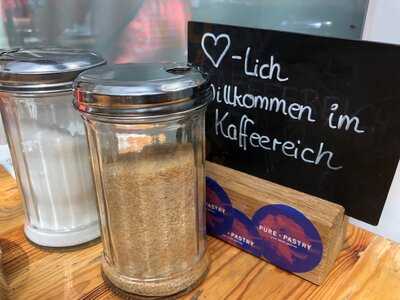 ♡-Lich
Willkommen im
Kaffeereich
PURE • PASTRY
PURE • PASTRY
PASTRY